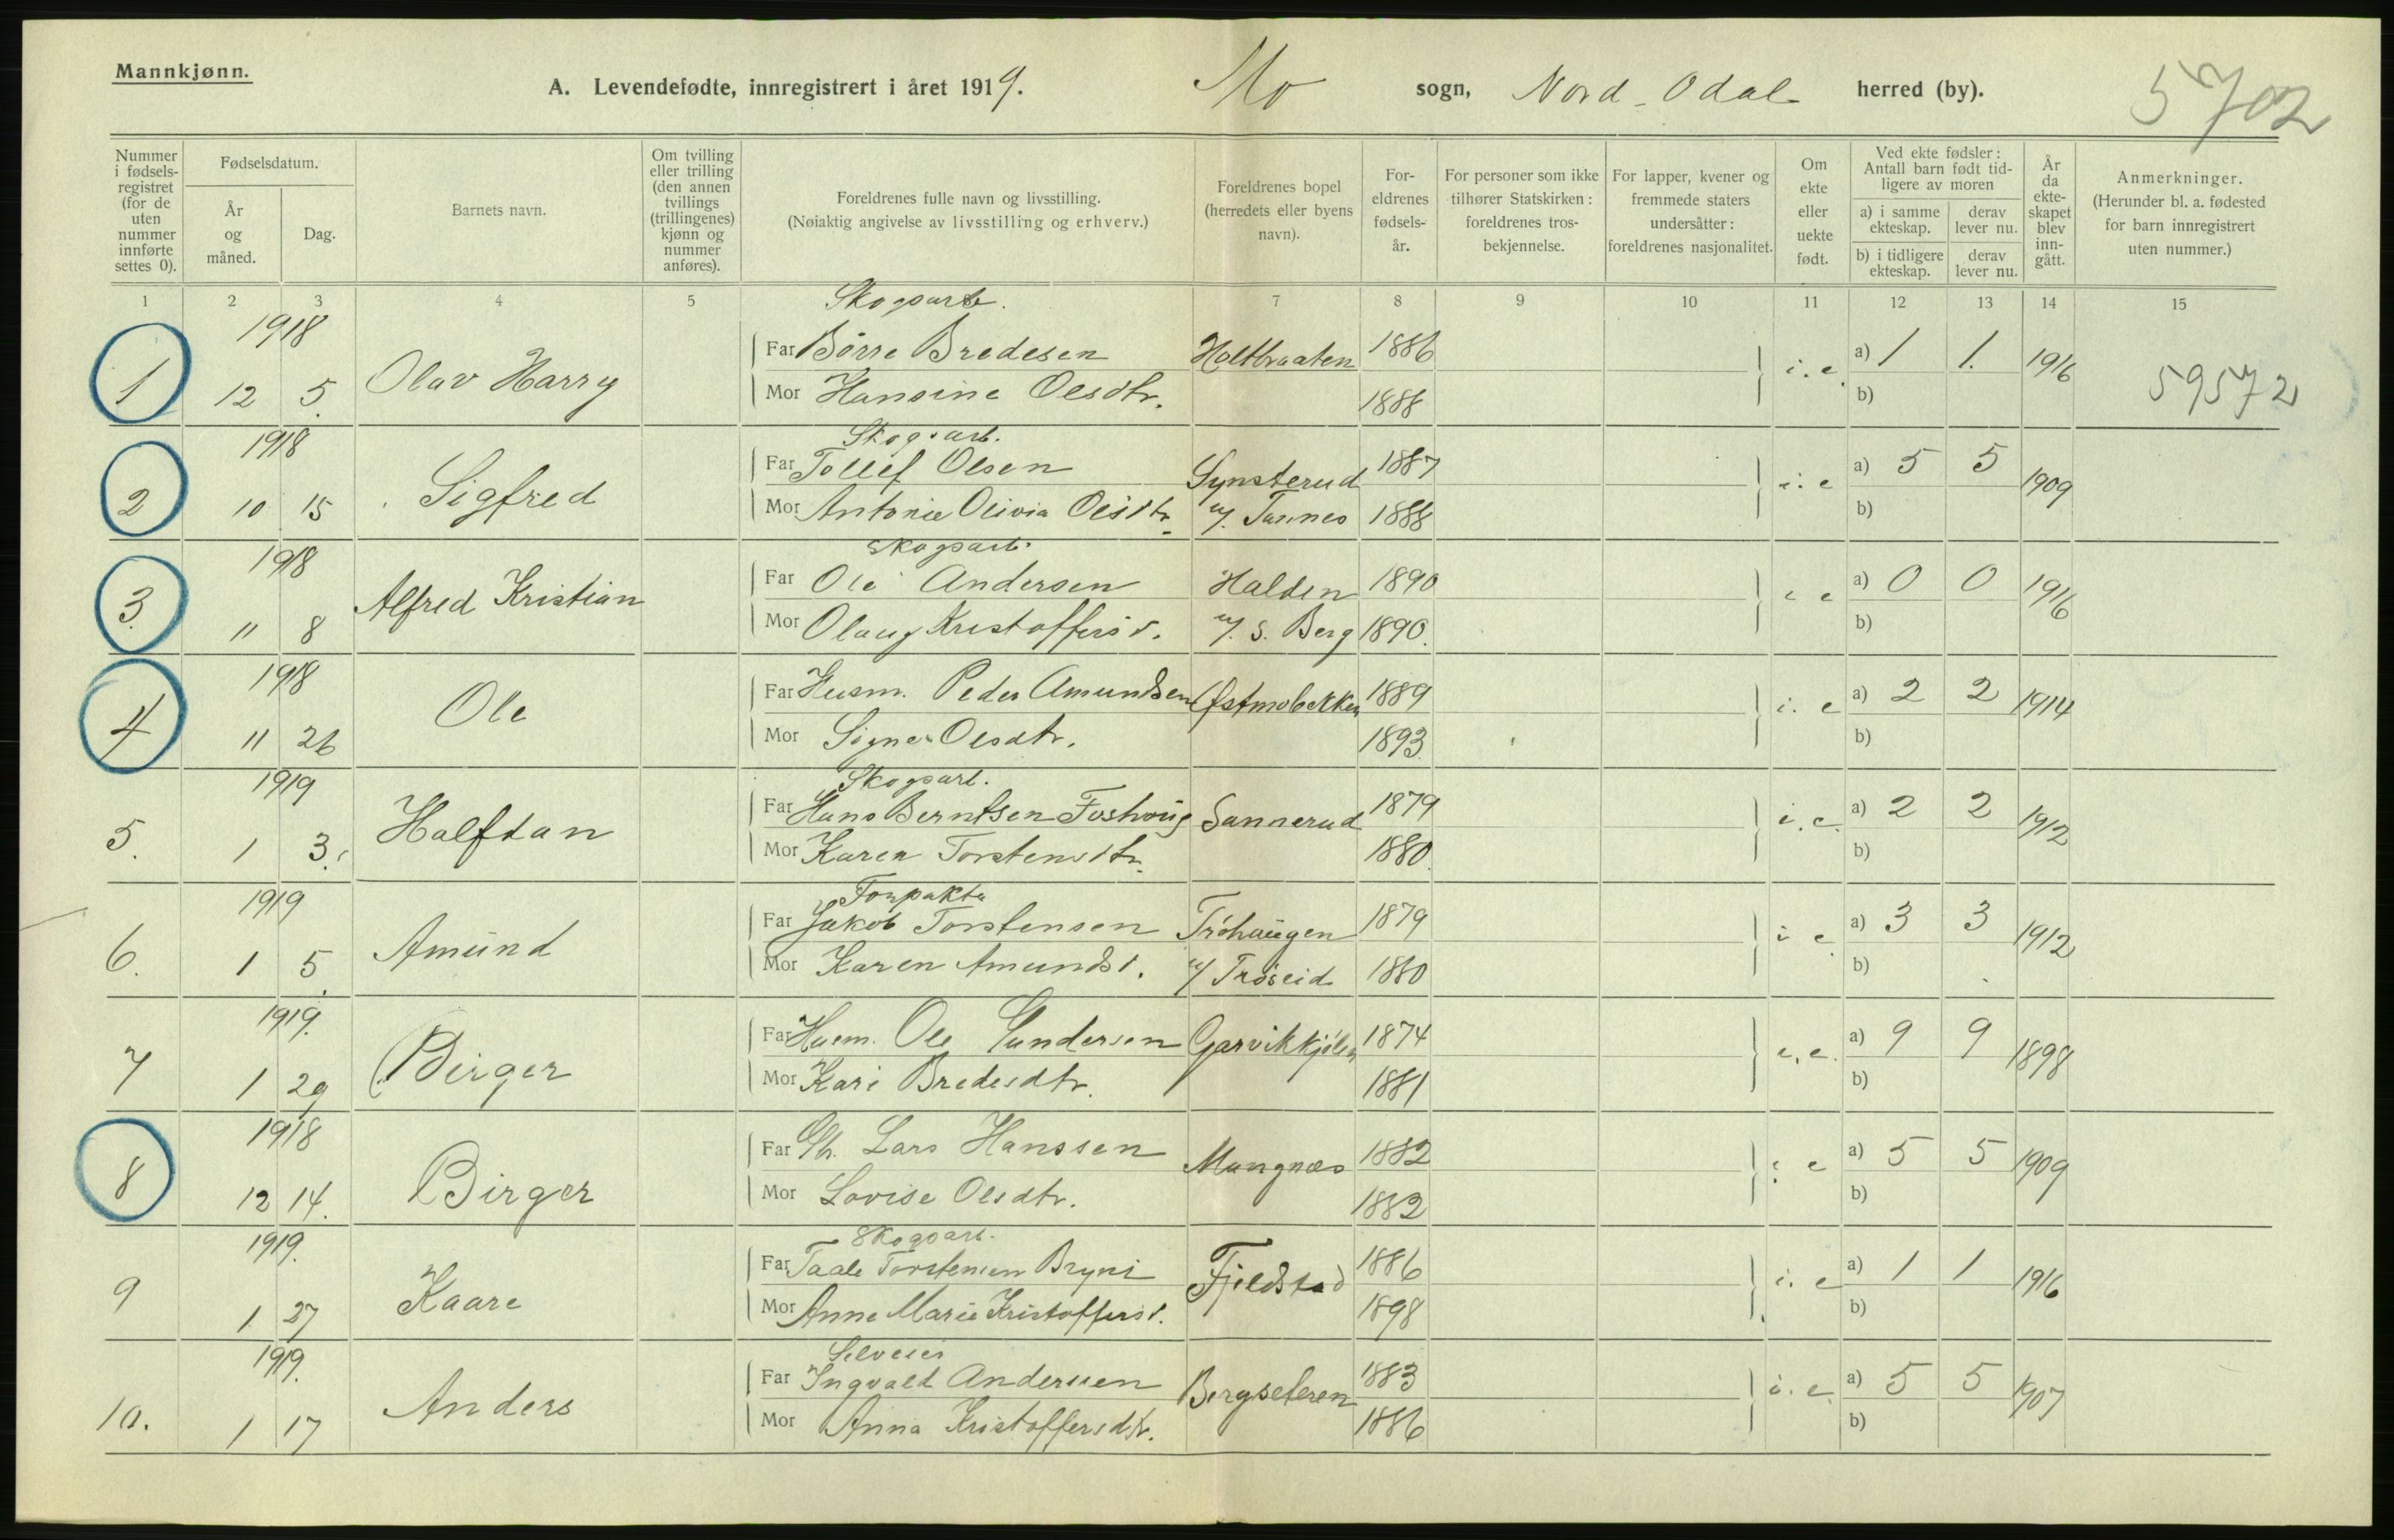 Mannkjønn.
A. Levendefødte, innregistrert i året 1919. Mo sogn, Nord-Odal herred (by).
5702
Nummer i fødsels-registret (for de uten nummer innførte settes 0).
Fødselsdatum.
År og måned.
Dag.
Barnets navn.
Om tvilling eller trilling (den annen tvillings (trillingenes) kjønn og nummer anføres).
Foreldrenes fulle navn og livsstilling.
(Nøiaktig angivelse av livsstilling og erhverv.)
Foreldrenes bopel (herredets eller byens navn).
For-eldrenes fødsels-år.
For personer som ikke tilhører Statskirken: foreldrenes tros-bekjennelse.
For lapper, kvener og fremmede staters undersåtter: foreldrenes nasjonalitet.
Om ekte eller uekte født.
Ved ekte fødsler: Antall barn født tid-ligere av moren
a) i samme ekteskap. derav lever nu.
b) i tidligere ekteskap. derav lever nu.
År da ekte-skapet blev inn-gått.
Anmerkninger.
(Herunder bl. a. fødested for barn innregistrert uten nummer.)
1 2 3 4 5 6 7 8 9 10 11 12 13 14 15
1918 Skogsarb.
1 12 5. Olav Harry Far Börre Bredesen Holtbraaten 1886 i. e. a) 1 1. 1916
Mor Hansine Olsdtr. 1888 b) 59572
1918 Skogsarb.
2 10 15 Sigfred Far Tollef Olsen Synsterud 1887 i. e a) 5 5 1909
Mor Antonie Olivia Olsdtr. u/. Tannes 1888 b)
1918 Skogsarb.
3. 11 8 Alfred Kristian Far Ole Andersen Halden 1890 i e a) 0 0 1916
Mor Olaug Kristoffersd. u/. S. Berg 1890. b)
1918
4 11 26 Ole Far Husm. Peder Amundsen Østmobekken 1889 i. e a) 2 2 1914
Mor Signe Olsdtr. 1893. b)
1919 Skogsarb.
5. 1 3. Halfdan Far Hans Berntsen Foshoug Sannerud 1879 i. e. a) 2 2 1912
Mor Karen Torstensdtr. 1880. b)
1919 Forpakter
6. 1 5. Amund Far Jakob Torstensen Tröhaugen 1879 i e. a) 3 3 1912
Mor Karen Amundsd. u/ Tröseid 1880 b)
1919.
7 1 29 Birger Far Husm. Ole Gundersen Garvikkjölen 1874 i. e. a) 9 9 1898
Mor Kari Bredesdtr. 1881 b)
1918
8 12 14. Birger Far Gb. Lars Hanssen Mangnæs 1882 i e a) 5 5 1909
Mor Lovise Olsdtr. 1882 b)
1919. Skogsarb.
9 1 27 Kaare Far Taale Torstensen Bryni Fjeldstad 1886 i. e a) 1 1 1916
Mor Anne Marie Kristoffersd. 1898 b)
1919. Selveier
10. 1 17 Anders Far Ingvald Anderssen Bergseteren 1883 i. e. a) 5 5 1907
Mor Anna Kristoffersdtr. 1886 b)